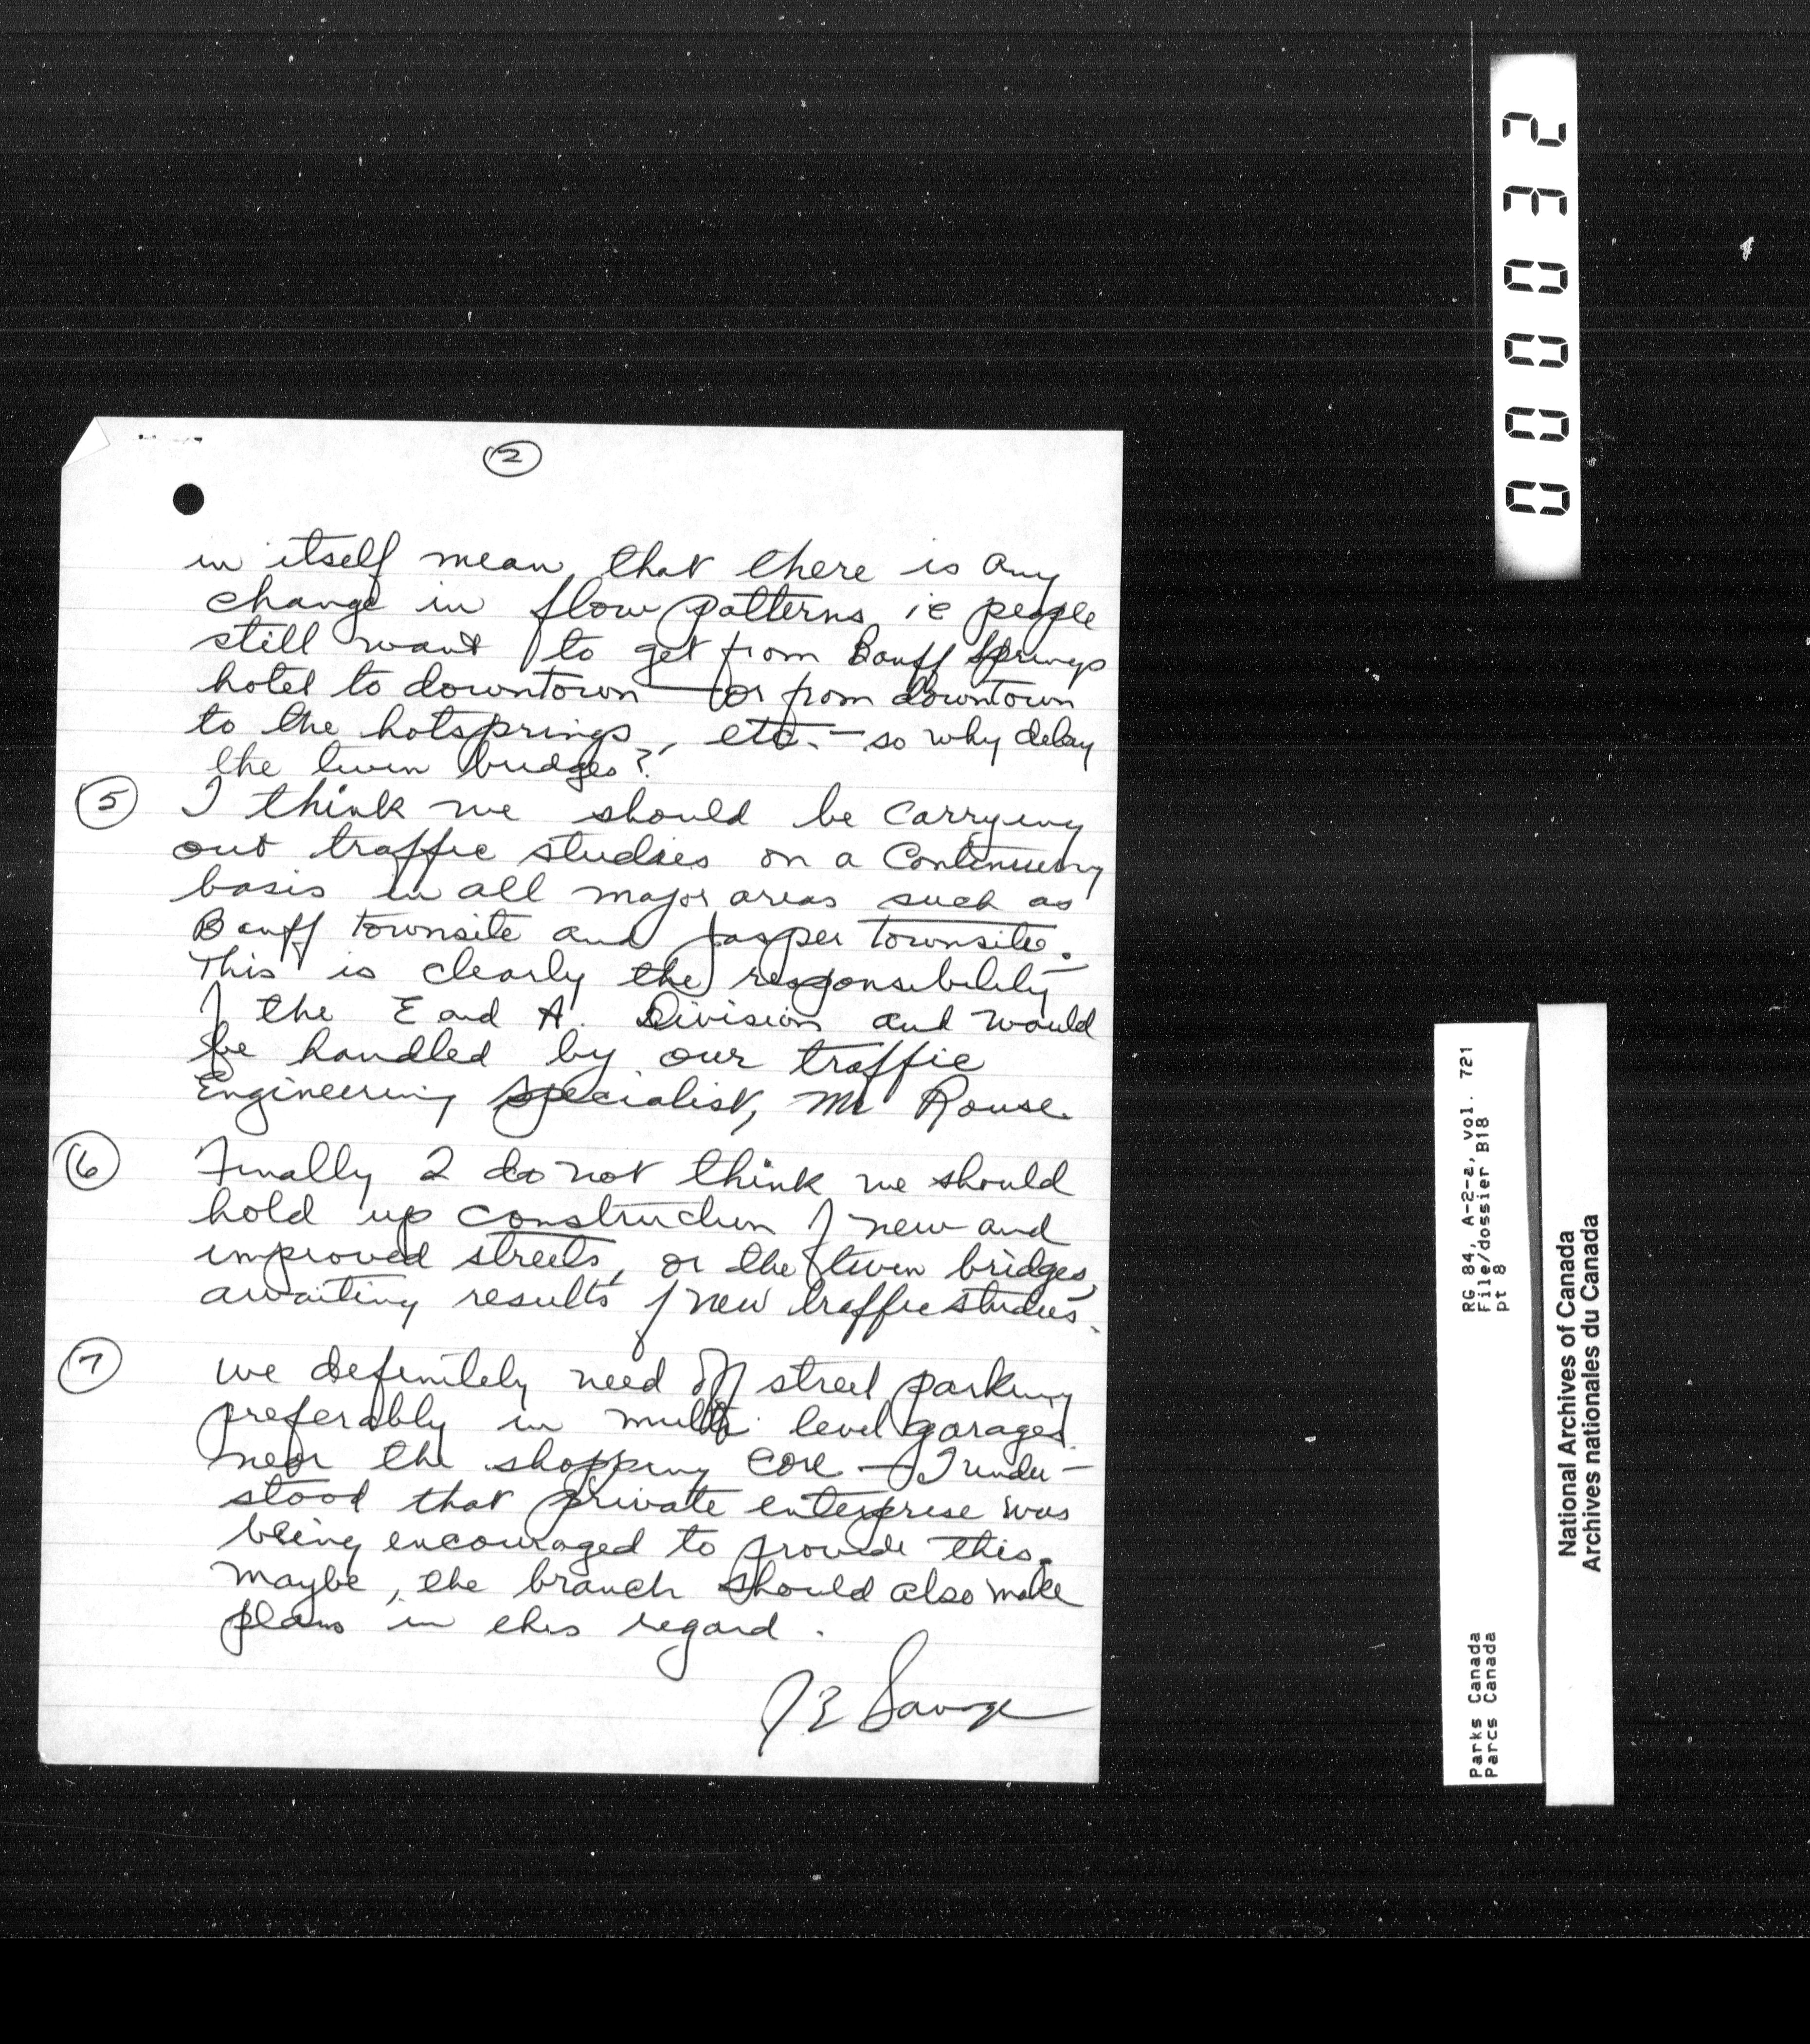 2
in itself mean that there is any
change in flow patterns ie people
still want to get from Banff Springs
hotel to downtown — or from downtown
to the hotsprings, etc. — so why delay
the twin bridges?
5 I think we should be carrying
out traffic studies on a continuing
basis in all major areas such as
Banff townsite and Jasper townsite.
This is clearly the responsibility
of the E and A. Division and would
be handled by our traffic
Engineering specialist, Mr Rouse.
6 Finally I do not think we should
hold up construction of new and
improved streets, or the twin bridges,
awaiting results of new traffic studies.
7 We definitely need off street parking
preferably in multi level garages
near the shopping core — I under-
stood that private enterprise was
being encouraged to provide this.
Maybe, the branch should also make
plans in this regard.
J E Savage
000032
RG 84, A-2-a, vol. 721
File/dossier B18
pt 8
Parks Canada
Parcs Canada
National Archives of Canada
Archives nationales du Canada